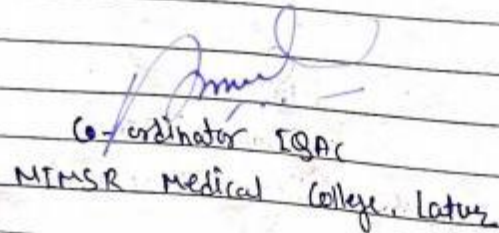 Co-ordinator IQAC
MIMSR Medical College, Latur